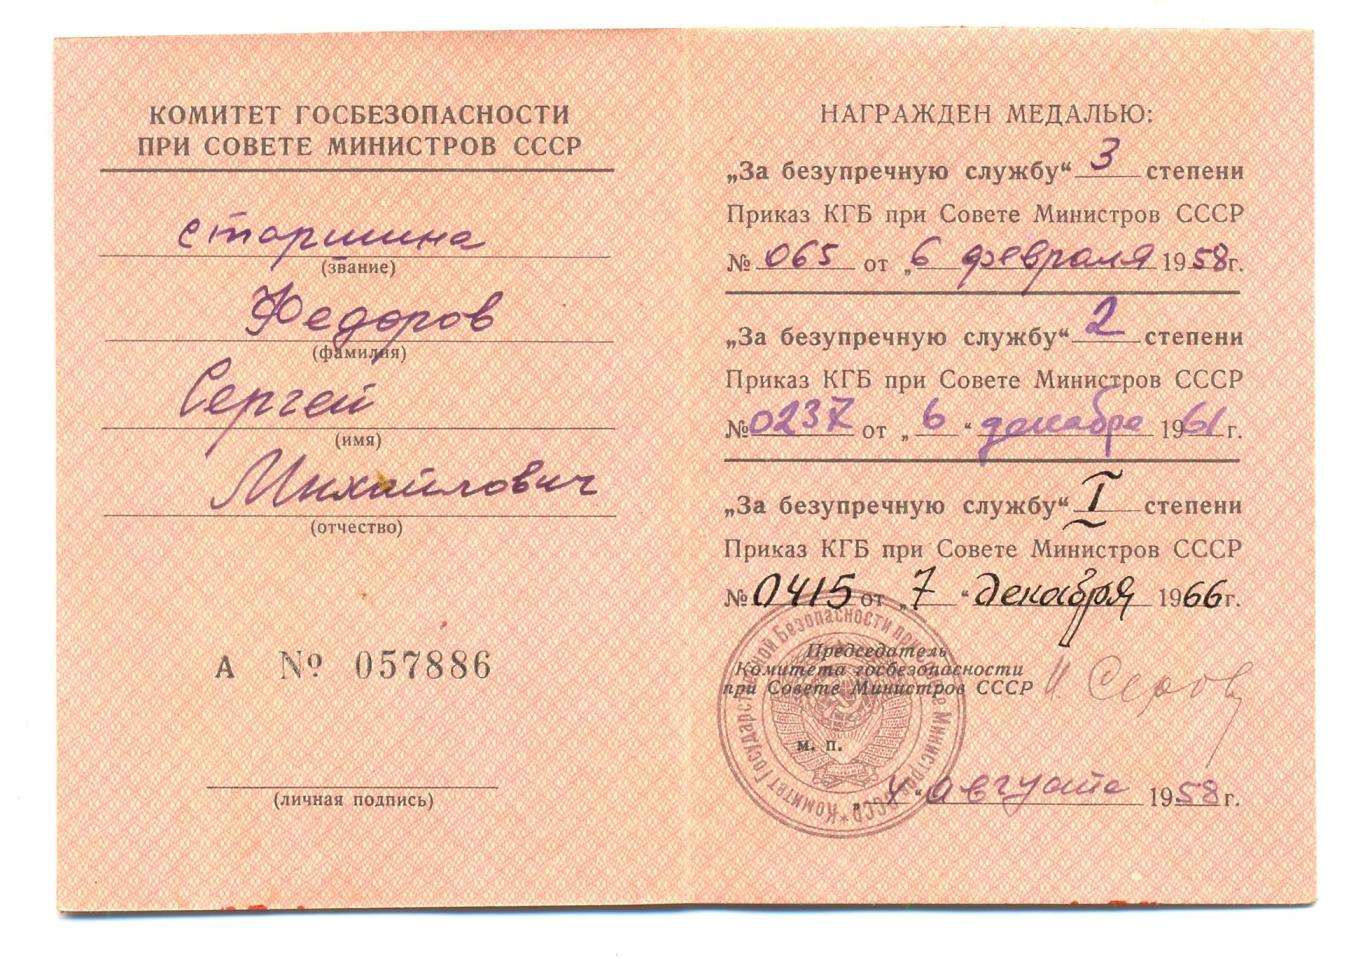 КОМИТЕТ ГОСБЕЗОПАСНОСТИ
ПРИ СОВЕТЕ МИНИСТРОВ СССР
старшина
(звание)
Федоров
(фамилия)
Сергей
(имя)
Михайлович
(отчество)
А № 057886
(личная подпись)
НАГРАЖДЕН МЕДАЛЬЮ:
„За безупречную службу“ 3 степени
Приказ КГБ при Совете Министров СССР
№ 065 от „6 февраля 1958г.
„За безупречную службу“ 2 степени
Приказ КГБ при Совете Министров СССР
№ 0237 от „6“ декабря 1961г.
„За безупречную службу“ I степени
Приказ КГБ при Совете Министров СССР
№ 0415 от „7“ декабря 1966г.
Председатель
Комитета госбезопасности
при Совете Министров СССР И Серов
м. п.
„4“ августа 1958г.
Комитет Государственной Безопасности при Совете Министров СССР